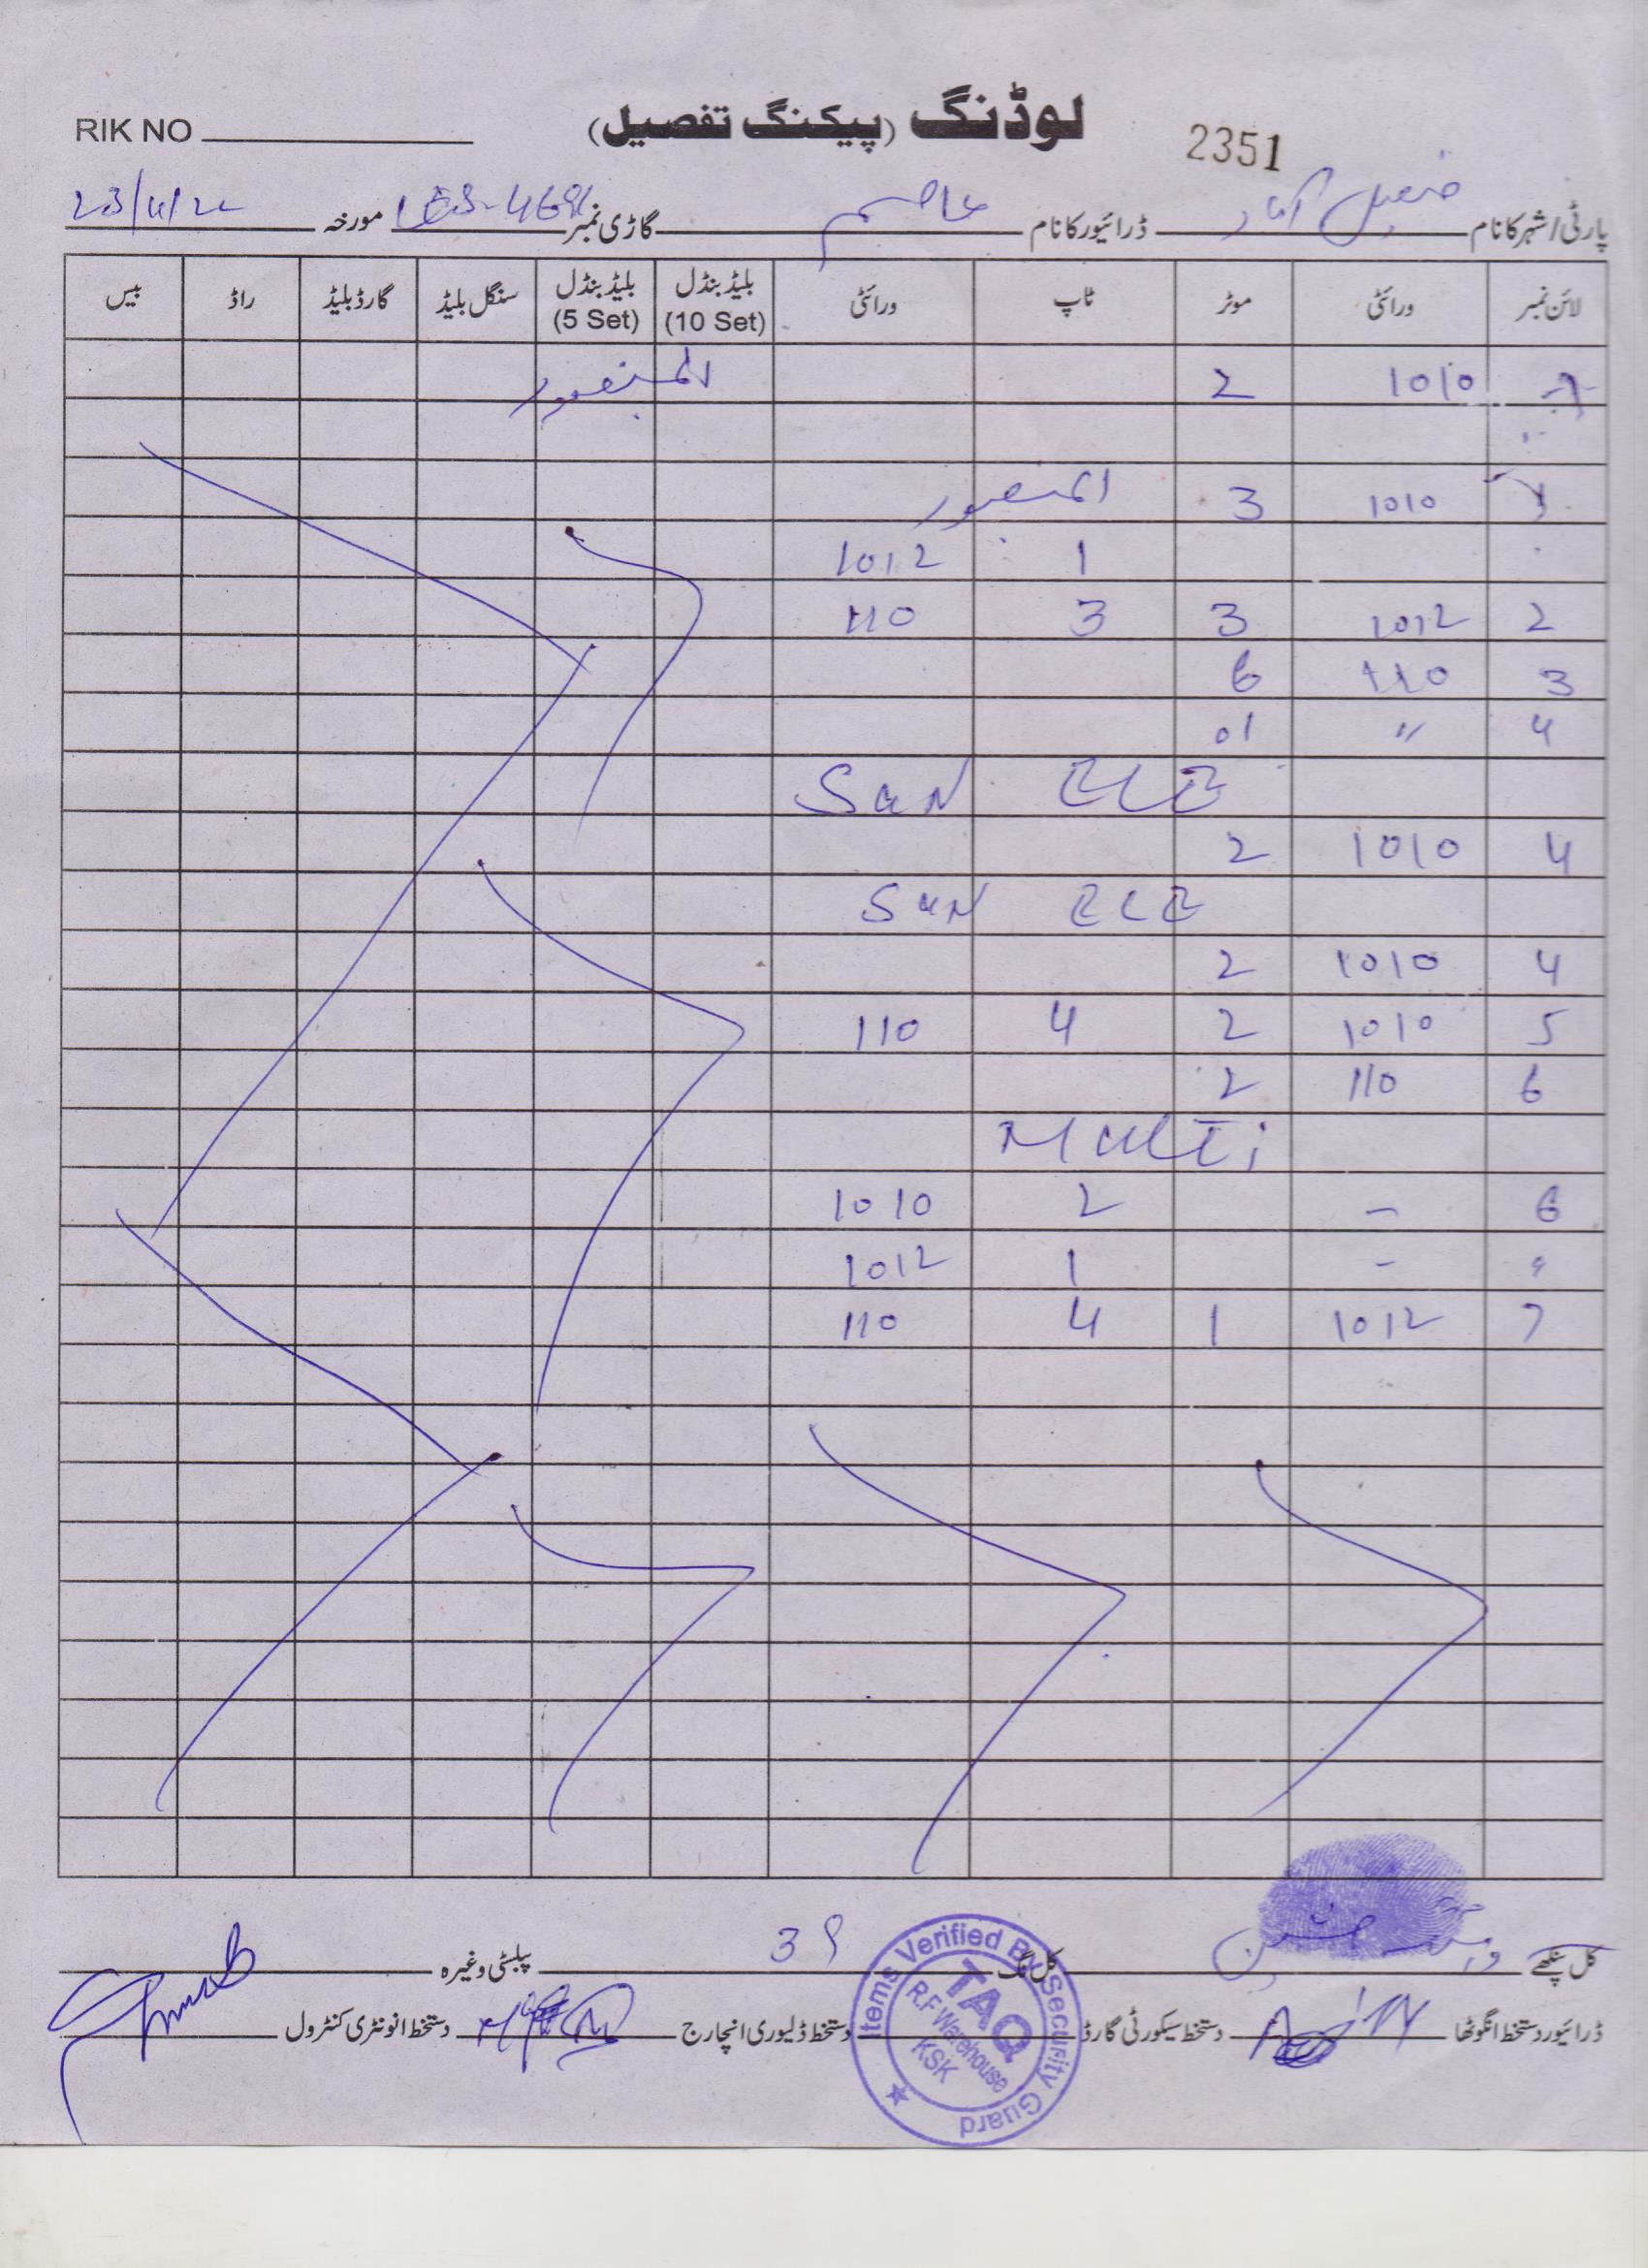 RIK NO
لوڈنگ (پیکنگ تفصیل)
2351
پارٹی/شہرکانام فیصل آباد ڈرائیورکانام عاصم گاڑی نمبر LES-4691 مورخہ 23/11/22
لائن نمبر ورائٹی موٹر ٹاپ ورائٹی بلیڈ بنڈل (10 Set) بلیڈ بنڈل (5 Set) سنگل بلیڈ گارڈ بلیڈ راڈ بیس
1010 2 المنصور
1010 3 المنصور
1 1012
2 1012 3 3 110
3 110 6
4 〃 01
SuN ELE
4 1010 2
SuN ELE
4 1010 2
5 1010 2 4 110
6 110 2
MulTi
6 - 2 1010
- 1 1012
7 1012 1 4 110
کل پنکھے کل نگ 39 پبلسٹی وغیرہ
ڈرائیور دستخط انگوٹھا دستخط سیکورٹی گارڈ دستخط ڈلیوری انچارج دستخط انونٹری کنٹرول
Items Verified By Security Guard
TAQ
R.F Warehouse
KSK